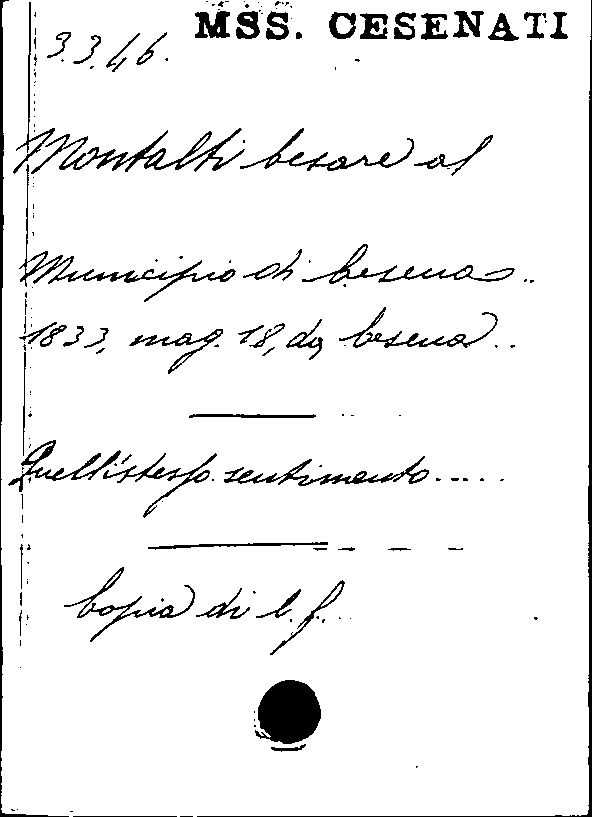 MSS. CESENATI
3.3.46.
Montalti Cesare al
Municipio di Cesena..
1833, mag. 18, da Cesena..
Quell'istesso sentimento.....
Copia di c. f.